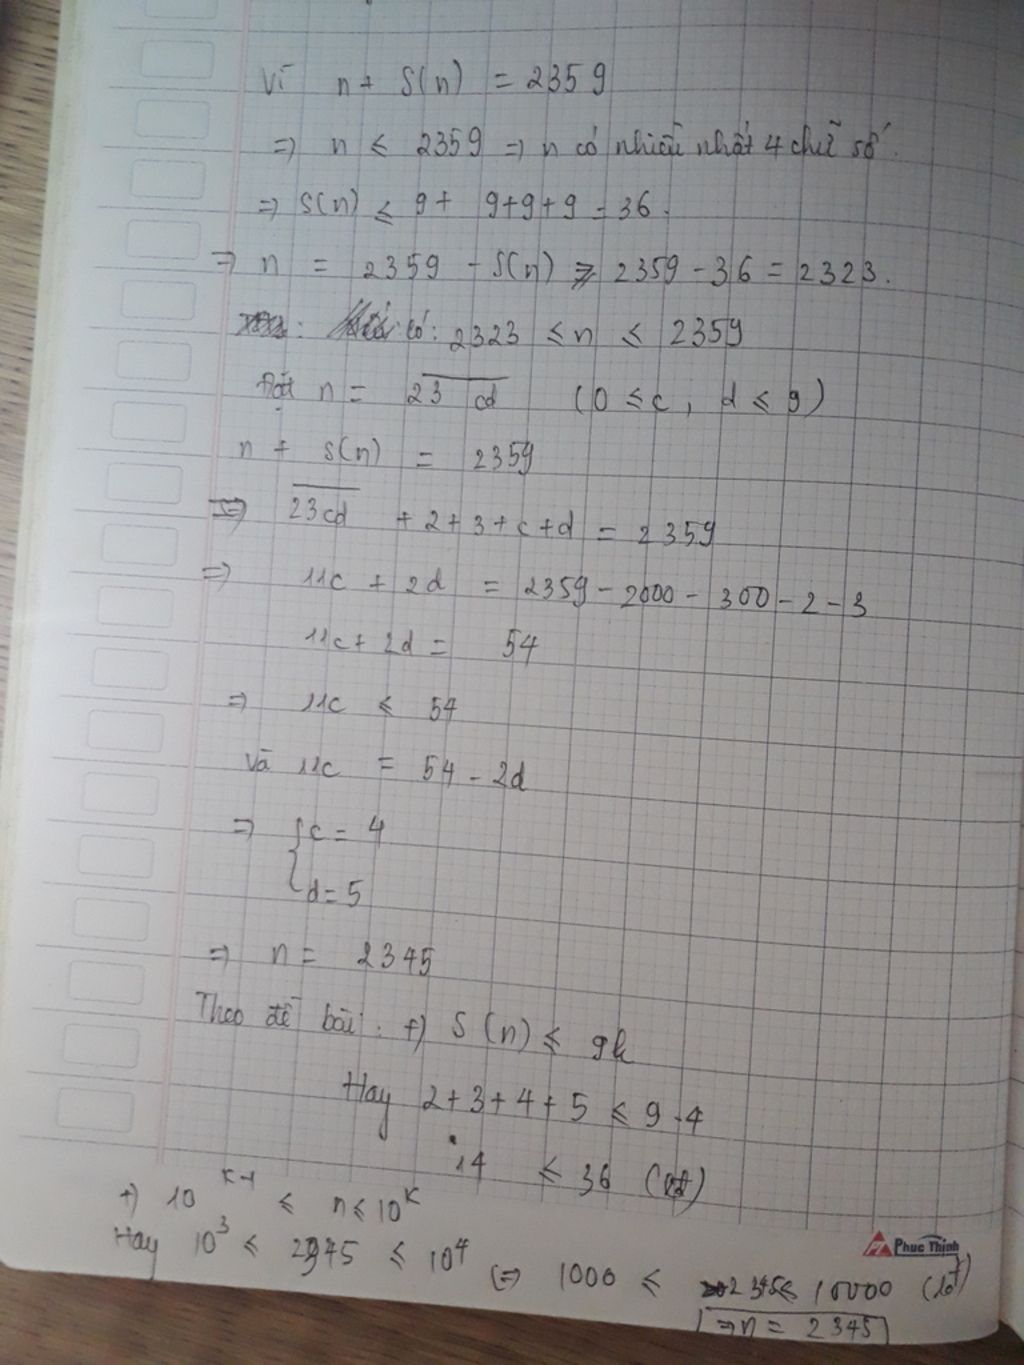 Vì n + S(n) = 2359
=> n ≤ 2359 => n có nhiều nhất 4 chữ số.
=> S(n) ≤ 9 + 9+9+9 = 36.
=> n = 2359 - S(n) ≥ 2359 - 36 = 2323.
có: 2323 ≤ n ≤ 2359
Đặt n = \overline{23cd} (0 ≤ c, d ≤ 9)
n + S(n) = 2359
=> \overline{23cd} + 2+3+c+d = 2359
=> 11c + 2d = 2359 - 2000 - 300 - 2 - 3
11c + 2d = 54
=> 11c ≤ 54
và 11c = 54 - 2d
=> { c = 4
d = 5
=> n = 2345
Theo đề bài: +) S(n) ≤ 9k
Hay 2+3+4+5 ≤ 9.4
14 ≤ 36
+) 10^{k-1} ≤ n ≤ 10^k
Hay 10^3 ≤ 2345 ≤ 10^4 (=> 1000 ≤ 2345 ≤ 10000
Phuc Thinh
=> n = 2345